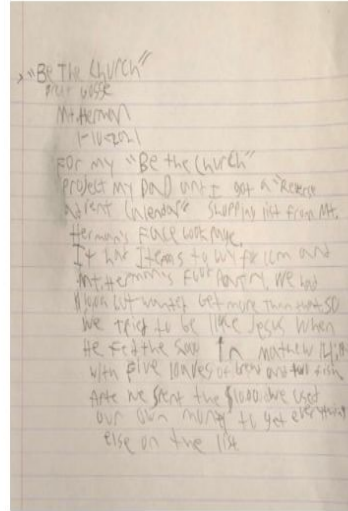 "Be The Church"
Mt. Herman
1-10-2021
For my "Be the Church"
project my DaD and I got a "Reverse
Advent Calendar" Shopping list from Mt.
Herman's Face book page.
It has Items to buy for icm and
Mt. Herman's Food Pantry. We had
but wanted Get more than that. SO
we tried to be like Jesus when
He Fed the 5000 In mathew 14
with five loaves of bread and two fish
we spent the $10.00 we used
our own money to get everything
else on the list